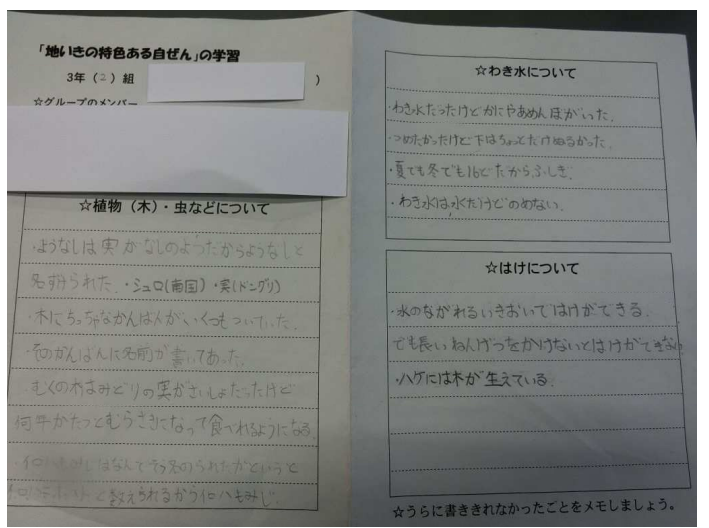 「地いきの特色ある自ぜん」の学習
3年(2)組 )
☆グループのメンバー
☆植物(木)・虫などについて
・ようなしは実がなしのようだからようなしと
名ずけられた。・シュロ(南国)・実(ドングリ)
・木にちっちゃなかんばんがいくつもついていた。
・そのかんばんに名前が書いてあった。
むくの木はみどりの実がさいしょだったけど
何年かたつとむらさきになって食べれるようになる。
イロハもみじはなんで名のられたかというと
と数えられるからイロハもみじ。
☆わき水について
・わき水だったけどかにやあめんぼがいた。
・つめたかったけど下はちょっとだけぬるかった。
・夏でも冬でも16どだからふしぎ。
・わき水は水だけどのめない。
☆はけについて
・水のながれるいきおいではけができる。
でも長いねんげつをかけないとはけができない
・ハケには木が生えている。
☆うらに書ききれなかったことをメモしましょう。